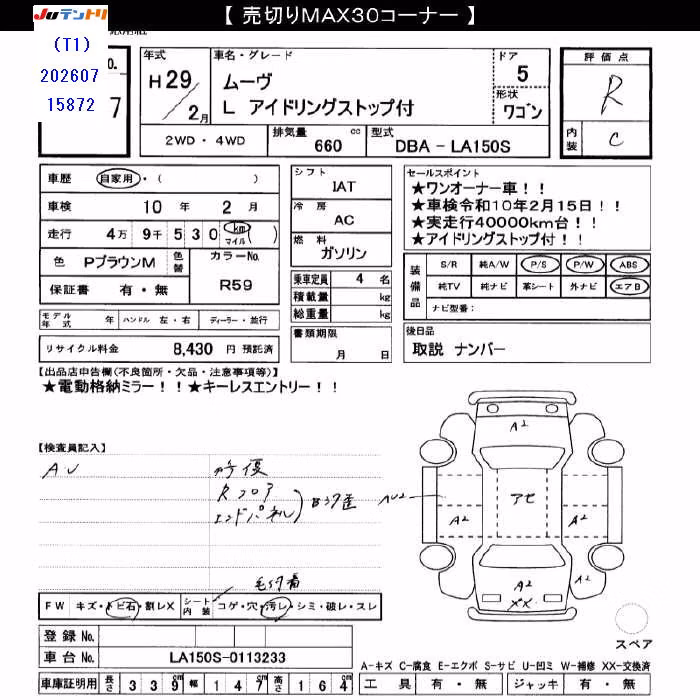 JUテントリ
【 売切りMAX30コーナー 】
(T1)
202607
15872
No.
7
年式
H29
2月
車名・グレード
ムーヴ
L アイドリングストップ付
ドア
5
形状
ワゴン
評価点
R
内装
C
2WD・4WD
排気量 660 cc
型式 DBA - LA150S
車歴 自家用・( )
車検 10 年 2 月
走行 4万 9千 5 3 0 km マイル ( )
色 PブラウンM 色替
カラーNo.
R59
保証書 有・無
シフト
IAT
冷房
AC
燃料
ガソリン
乗車定員 4 名
積載量 kg
総重量 kg
セールスポイント
★ワンオーナー車!!
★車検令和10年2月15日!!
★実走行40000km台!!
★アイドリングストップ付!!
装備品
S/R 純A/W P/S P/W ABS
純TV 純ナビ 革シート 外ナビ エアB
ナビ型番:
モデル年式 年 ハンドル 左・右 ディーラー・並行
リサイクル料金 8,430 円 預託済
書類期限
月 日
後日品
取説 ナンバー
【出品店申告欄(不良箇所・欠品・注意事項等)】
★電動格納ミラー!!★キーレスエントリー!!
【検査員記入】
AU
修復
Rフロア
エンドパネル
毛付着
A2
アセ
AU2
A2
A2
A2
A2
XX
FW キズ・トビ石・割レX
シート内装 コゲ・穴・汚レ・シミ・破レ・スレ
登録 No.
車台 No. LA150S-0113233
スペア
A-キズ C-腐食 E-エクボ S-サビ U-凹ミ W-補修 XX-交換済
車庫証明用 長さ 3 3 9 cm 幅 1 4 7 cm 高さ 1 6 4 cm
工具 有・無 ジャッキ 有・無